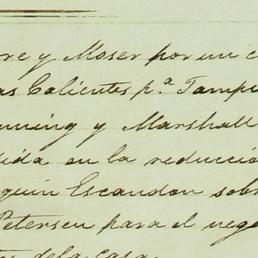 re y Moser por un c
as Calientes p.ª Tampi
nning y Marshall
dida en la reducció
quin Escandon sobr
Petersen para el nego
de la casa